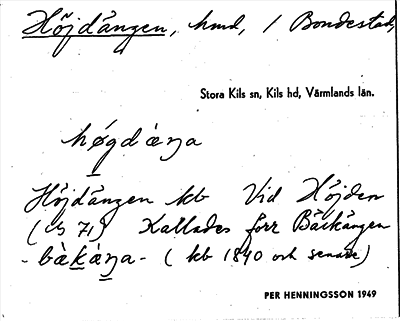 Höjdängen, hmd, / Bondestad,
Stora Kils sn, Kils hd, Värmlands län.
høgdàŋa
Höjdängen kb Vid Höjden
(LS 71) Kallades förr Bäckängen
-bàkáŋa- ( kb 1840 och senare)
PER HENNINGSSON 1949